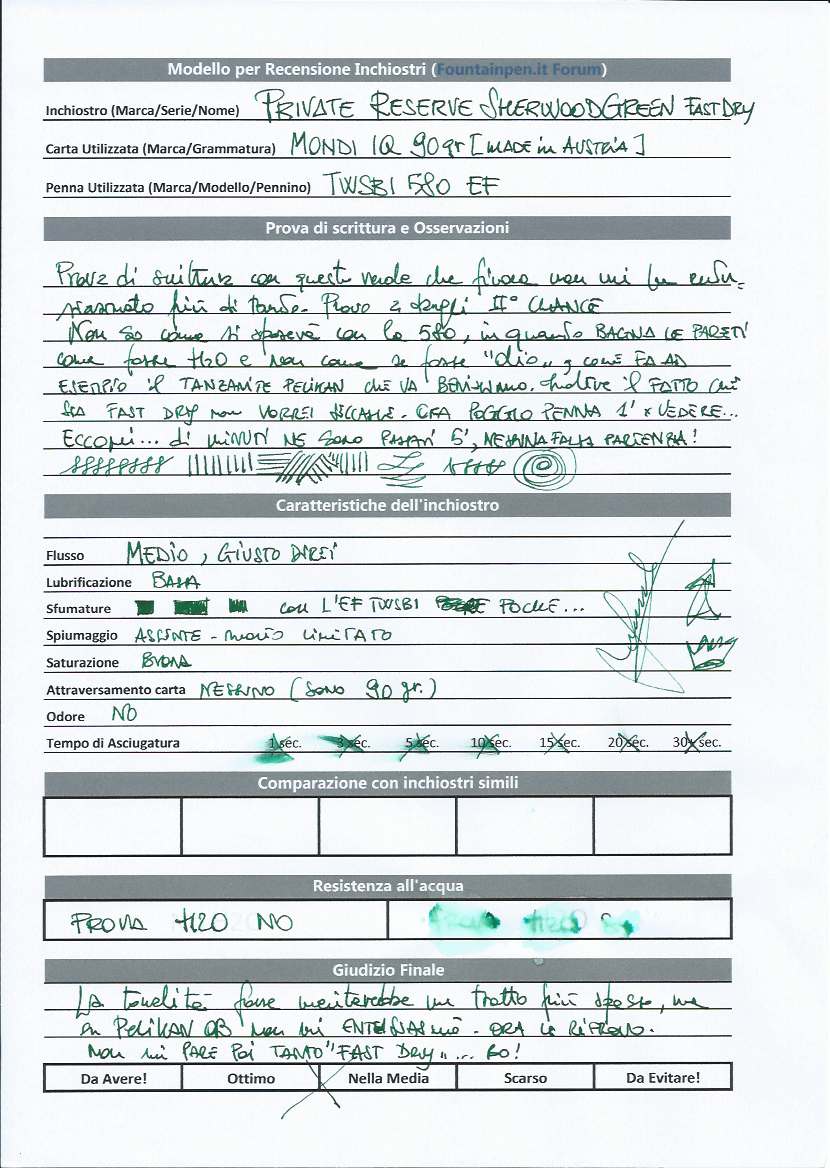 Modello per Recensione Inchiostri (Fountainpen.it Forum)
Inchiostro (Marca/Serie/Nome) PRIVATE RESERVE SHERWOOD GREEN FAST DRY
Carta Utilizzata (Marca/Grammatura) MONDI IQ 90gr [MADE in AUSTRIA]
Penna Utilizzata (Marca/Modello/Pennino) TWSBI 580 EF
Prova di scrittura e Osservazioni
Prova di scrittura con questo verde che finora non mi ha entu-
siasmato più di tanto. Provo a dargli IIº CHANCE
Non so come si sposerà con la 580, in quanto BAGNA LE PARETI
come fosse H2O e non come se fosse "olio", come FA AD
ESEMPIO il TANZANITE PELIKAN che VA BENISSIMO. Inoltre il FATTO che
SIA FAST DRY non VORREI SECCASSE. ORA POGGIO PENNA 1' x VEDERE...
Eccomi... di MINUTI NE SONO PASSATI 5', NESSUNA FALSA PARTENZA!
Caratteristiche dell'inchiostro
Flusso MEDIO, GIUSTO DIREI
Lubrificazione BASSA
Sfumature con L'EF TWSBI POCHE...
Spiumaggio ASSENTE - molto LIMITATO
Saturazione BUONA
Attraversamento carta NESSUNO (SONO 90 gr.)
Odore NO
Tempo di Asciugatura 1 sec. 3 sec. 5 sec. 10 sec. 15 sec. 20 sec. 30 sec.
Comparazione con inchiostri simili
Resistenza all'acqua
PROVA H2O NO PROVA H2O SI
Giudizio Finale
LA tonalità forse meriterebbe un tratto più spesso, ma
su PELIKAN OB non mi ENTUSIASMÒ. ORA LO RIPROVO.
NON mi PARE POI TANTO "FAST DRY"...
Da Avere! Ottimo Nella Media Scarso Da Evitare!